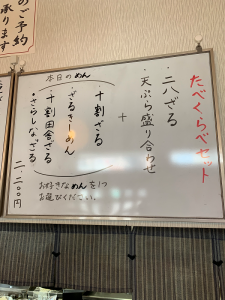 のご予約
承ります
たべくらべセット
・二八ざる
・天ぷら盛り合わせ
+
本日のめん
・十割ざる
・ざるきしめん
・十割田舎ざる
・さらしなざる
お好きなめんを1つ
お選びください。
二、二〇〇円